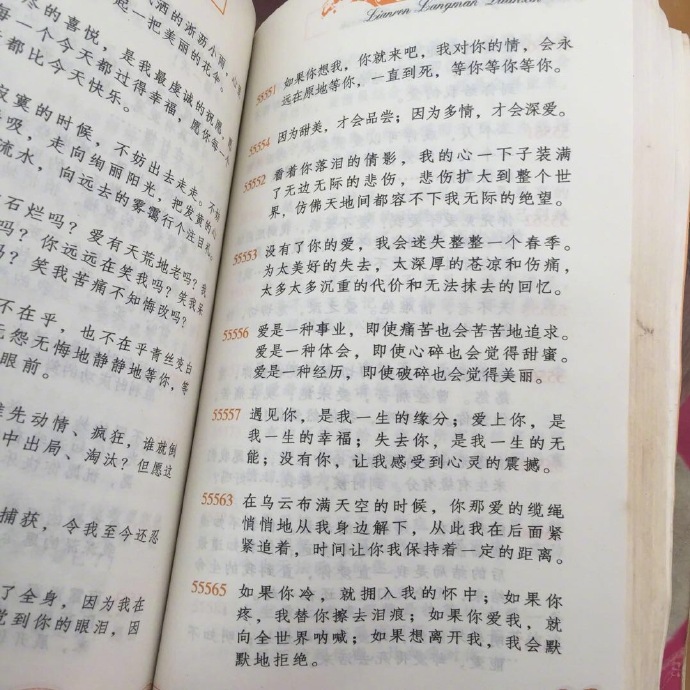 洒的淅沥小雨，心里
尽的喜悦，是我最虔诚的祝愿，愿
起…把美丽的花伞。
每一个今天都过得幸福，愿你每一个
都比今天快乐。
寂寞的时候，不妨出去走走。不妨
吸，走向绚丽阳光，把发黄的心
流水，向远去的雾霭行个注目礼。
石烂吗？爱有天荒地老吗？我
？你远远在笑我吗？笑我呆
？笑我苦痛不知悔改吗？
不在乎，也不在乎青丝变白
无怨无悔地静静地等你，等
眼前。
谁先动情、疯狂，谁就倒
中出局、淘汰？但愿这
捕获，令我至今还忍
了全身，因为我在
觉到你的眼泪，因
Lianren Langman Duanxin
55551 如果你想我，你就来吧，我对你的情，会永
远在原地等你，一直到死，等你等你等你。
55554 因为甜美，才会品尝；因为多情，才会深爱。
55552 看着你落泪的倩影，我的心一下子装满
了无边无际的悲伤，悲伤扩大到整个世
界，仿佛天地间都容不下我无际的绝望。
55553 没有了你的爱，我会迷失整整一个春季。
为太美好的失去，太深厚的苍凉和伤痛，
太多太多沉重的代价和无法抹去的回忆。
55556 爱是一种事业，即使痛苦也会苦苦地追求。
爱是一种体会，即使心碎也会觉得甜蜜。
爱是一种经历，即使破碎也会觉得美丽。
55557 遇见你，是我一生的缘分；爱上你，是
我一生的幸福；失去你，是我一生的无
能；没有你，让我感受到心灵的震撼。
55563 在乌云布满天空的时候，你那爱的缆绳
悄悄地从我身边解下，从此我在后面紧
紧追着，时间让你我保持着一定的距离。
55565 如果你冷，就拥入我的怀中；如果你
疼，我替你擦去泪痕；如果你爱我，就
向全世界呐喊；如果想离开我，我会默
默地拒绝。